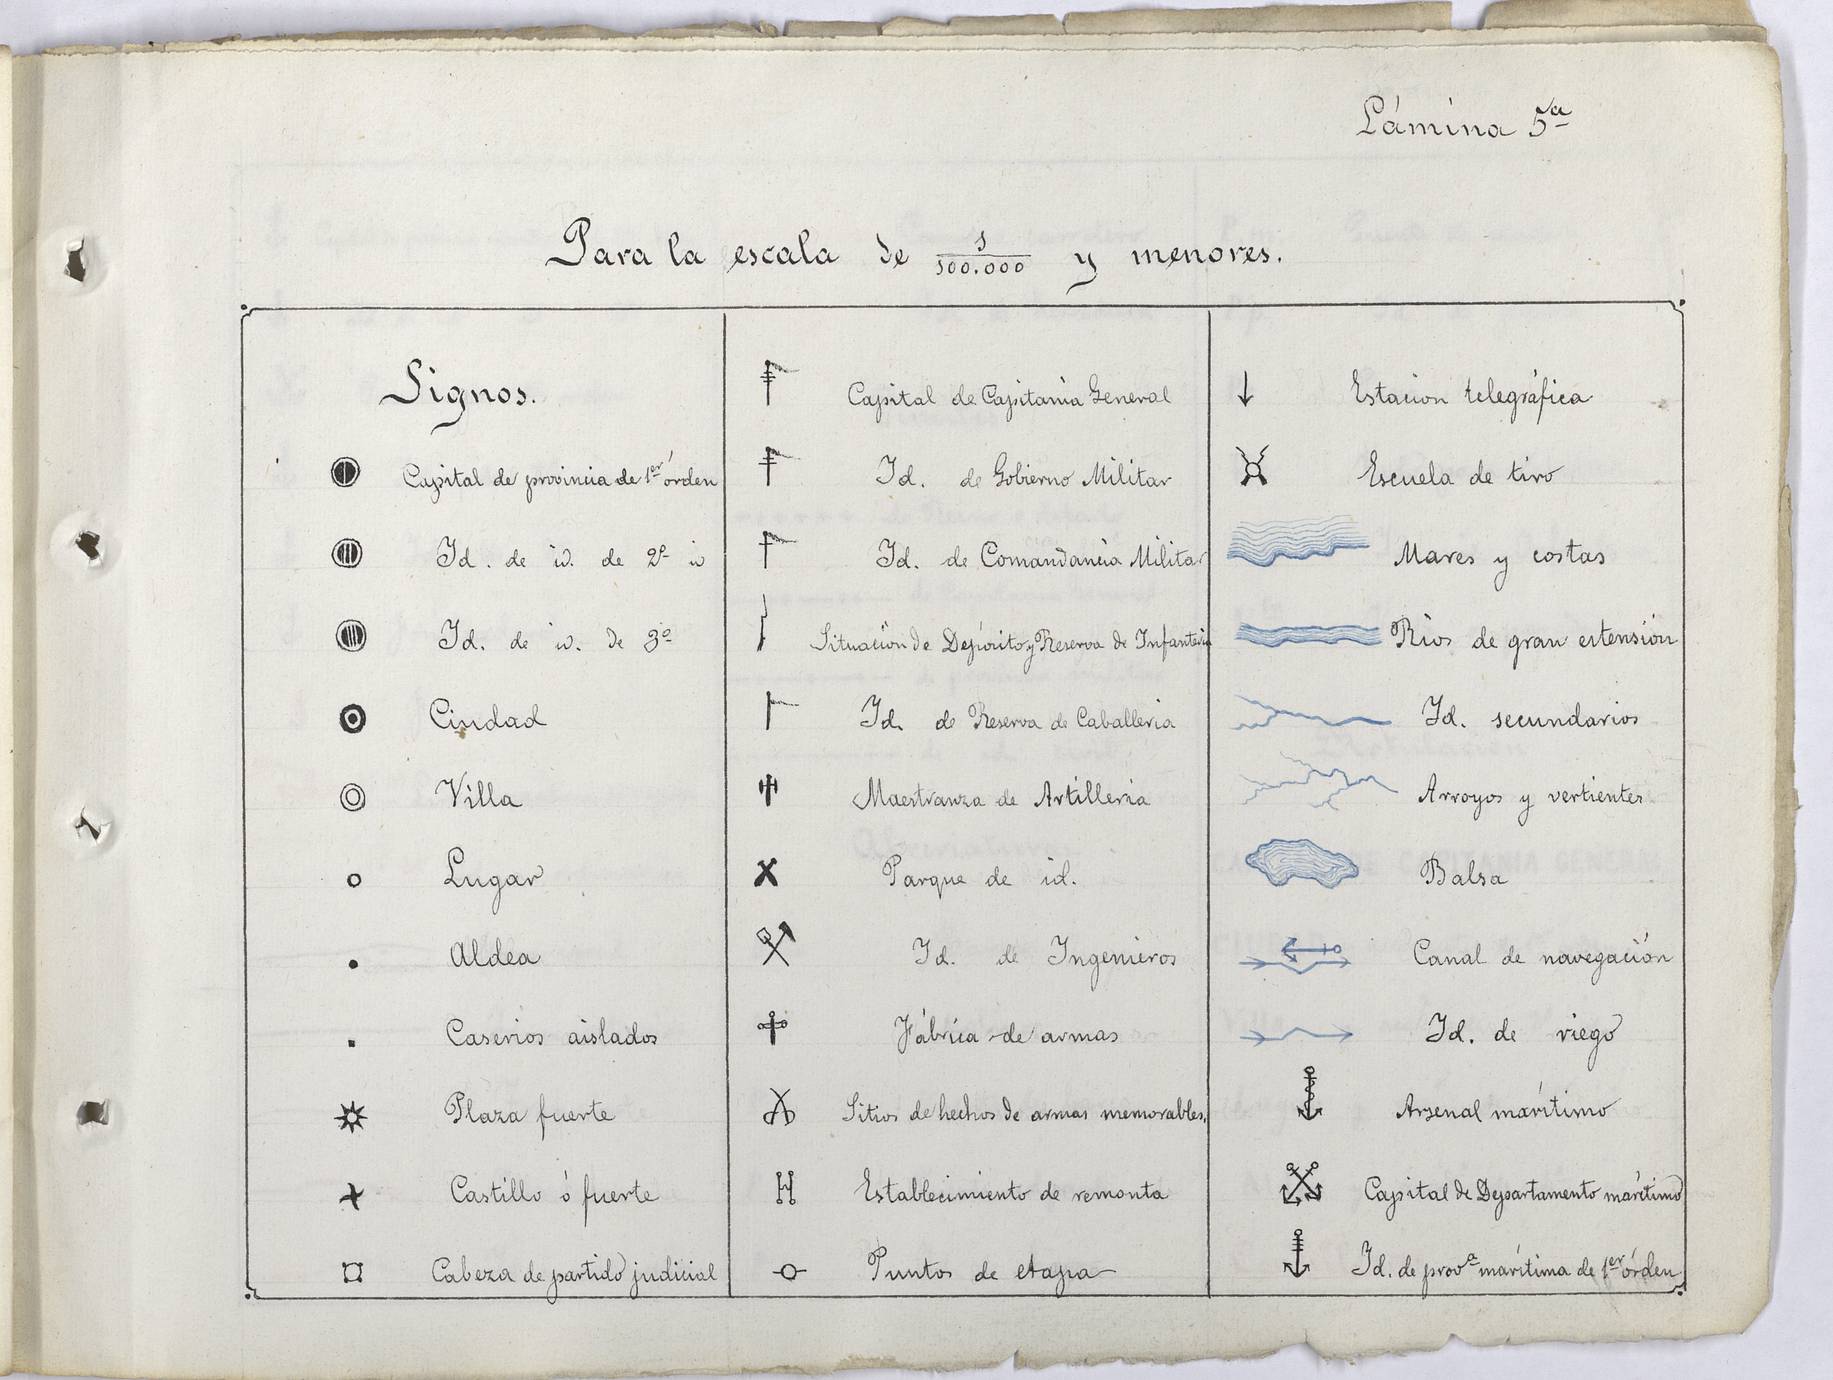 Lámina 5ª
Para la escala de 1/100.000 y menores.
Signos.
Capital de provincia de 1er órden
Id. de id. de 2º id
Id. de id. de 3º
Ciudad
Villa
Lugar
Aldea
Caserios aislados
Plaza fuerte
Castillo ó fuerte
Cabeza de partido judicial
Capital de Capitanía General
Id. de Gobierno Militar
Id. de Comandancia Militar
Situación de Depósito y Reserva de Infanteria
Id. de Reserva de Caballeria
Maestranza de Artilleria
Parque de id.
Id. de Ingenieros
Fábrica de armas
Sitios de hechos de armas memorables.
Establecimiento de remonta
Puntos de etapa
Estacion telegráfica
Escuela de tiro
Mares y costas
Rios de gran estensión
Id. secundarios
Arroyos y vertientes
Balsa
Canal de navegación
Id. de riego
Arsenal marítimo
Capital de Departamento marítimo
Id. de provª marítima de 1er órden